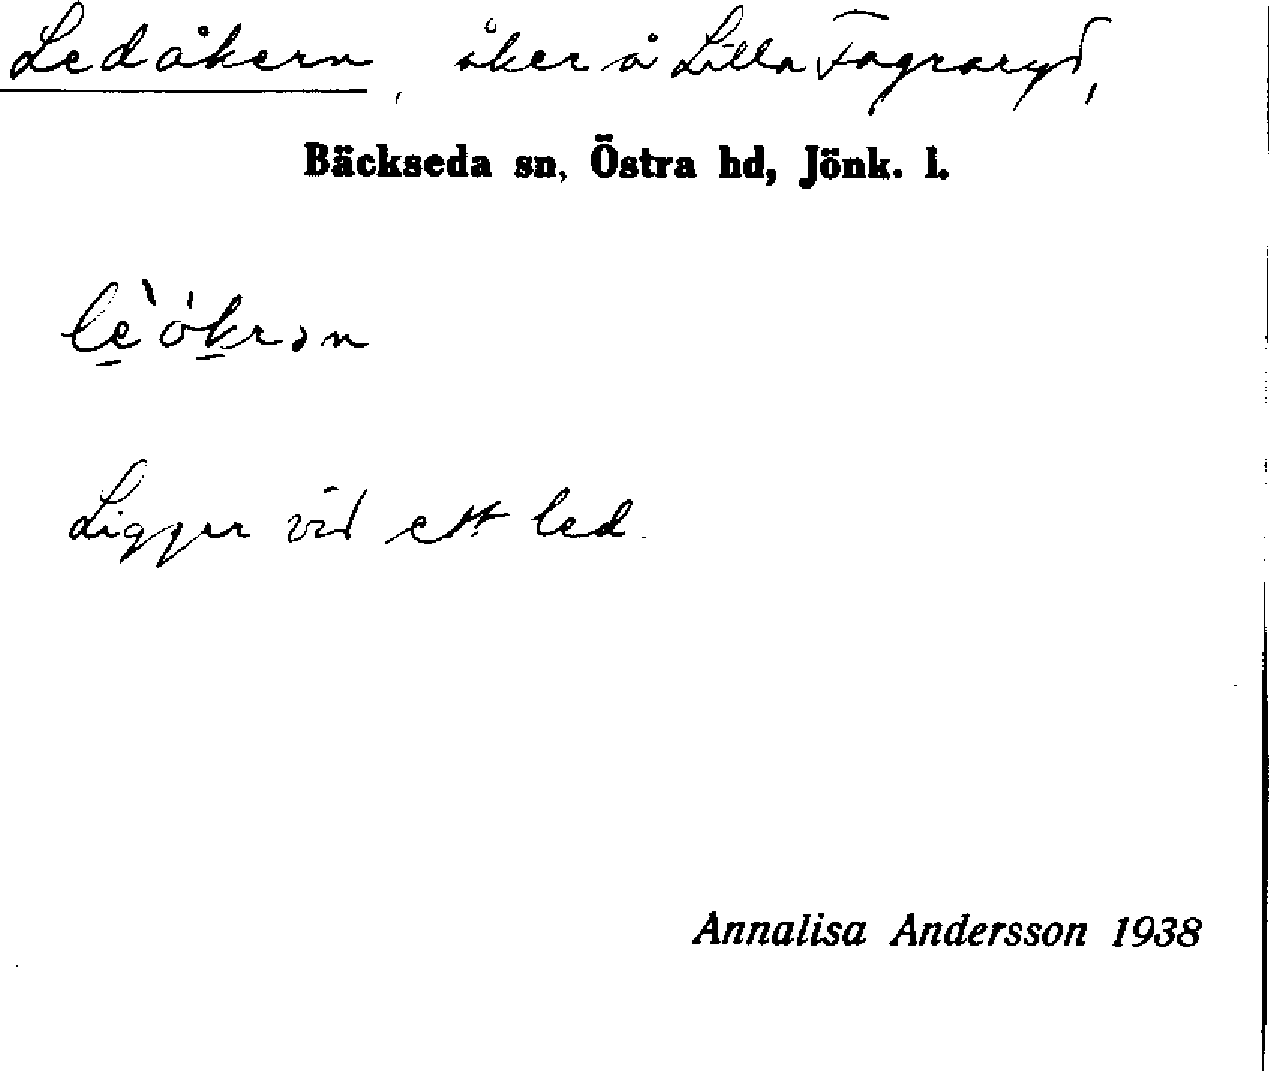 Ledåkern, åker å Lilla Fagraryd,
Bäckseda sn, Östra hd, Jönk. l.
Ligger vid ett led.
Annalisa Andersson 1938